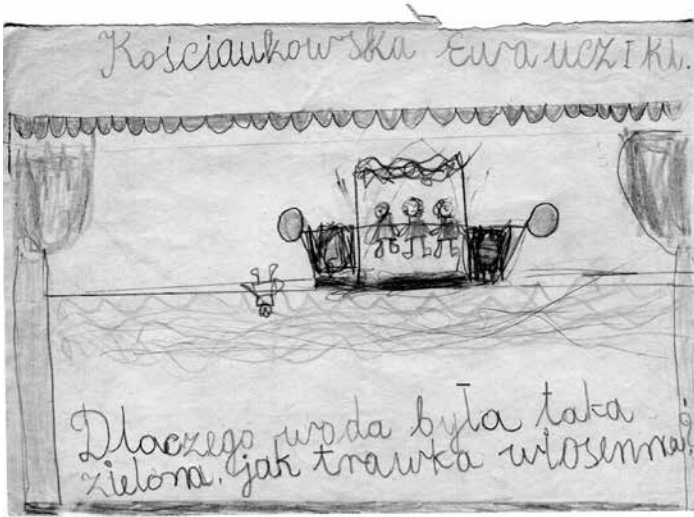 Kościaukowska Ewa ucz I kl.
Dlaczego woda była taka
zielona, jak trawka wiosenna?